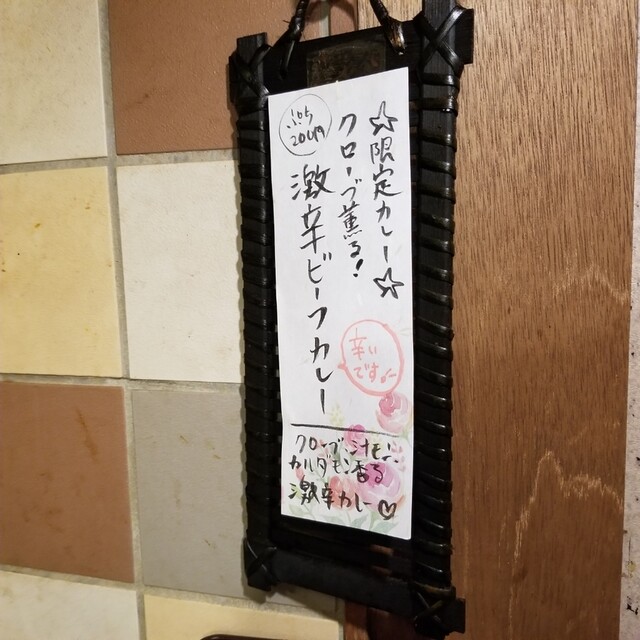 ☆限定カレー☆
クローブ薫る!
激辛ビーフカレー
辛い
です。
クローブ・シナモン・
カルダモン香る
激辛カレー♡